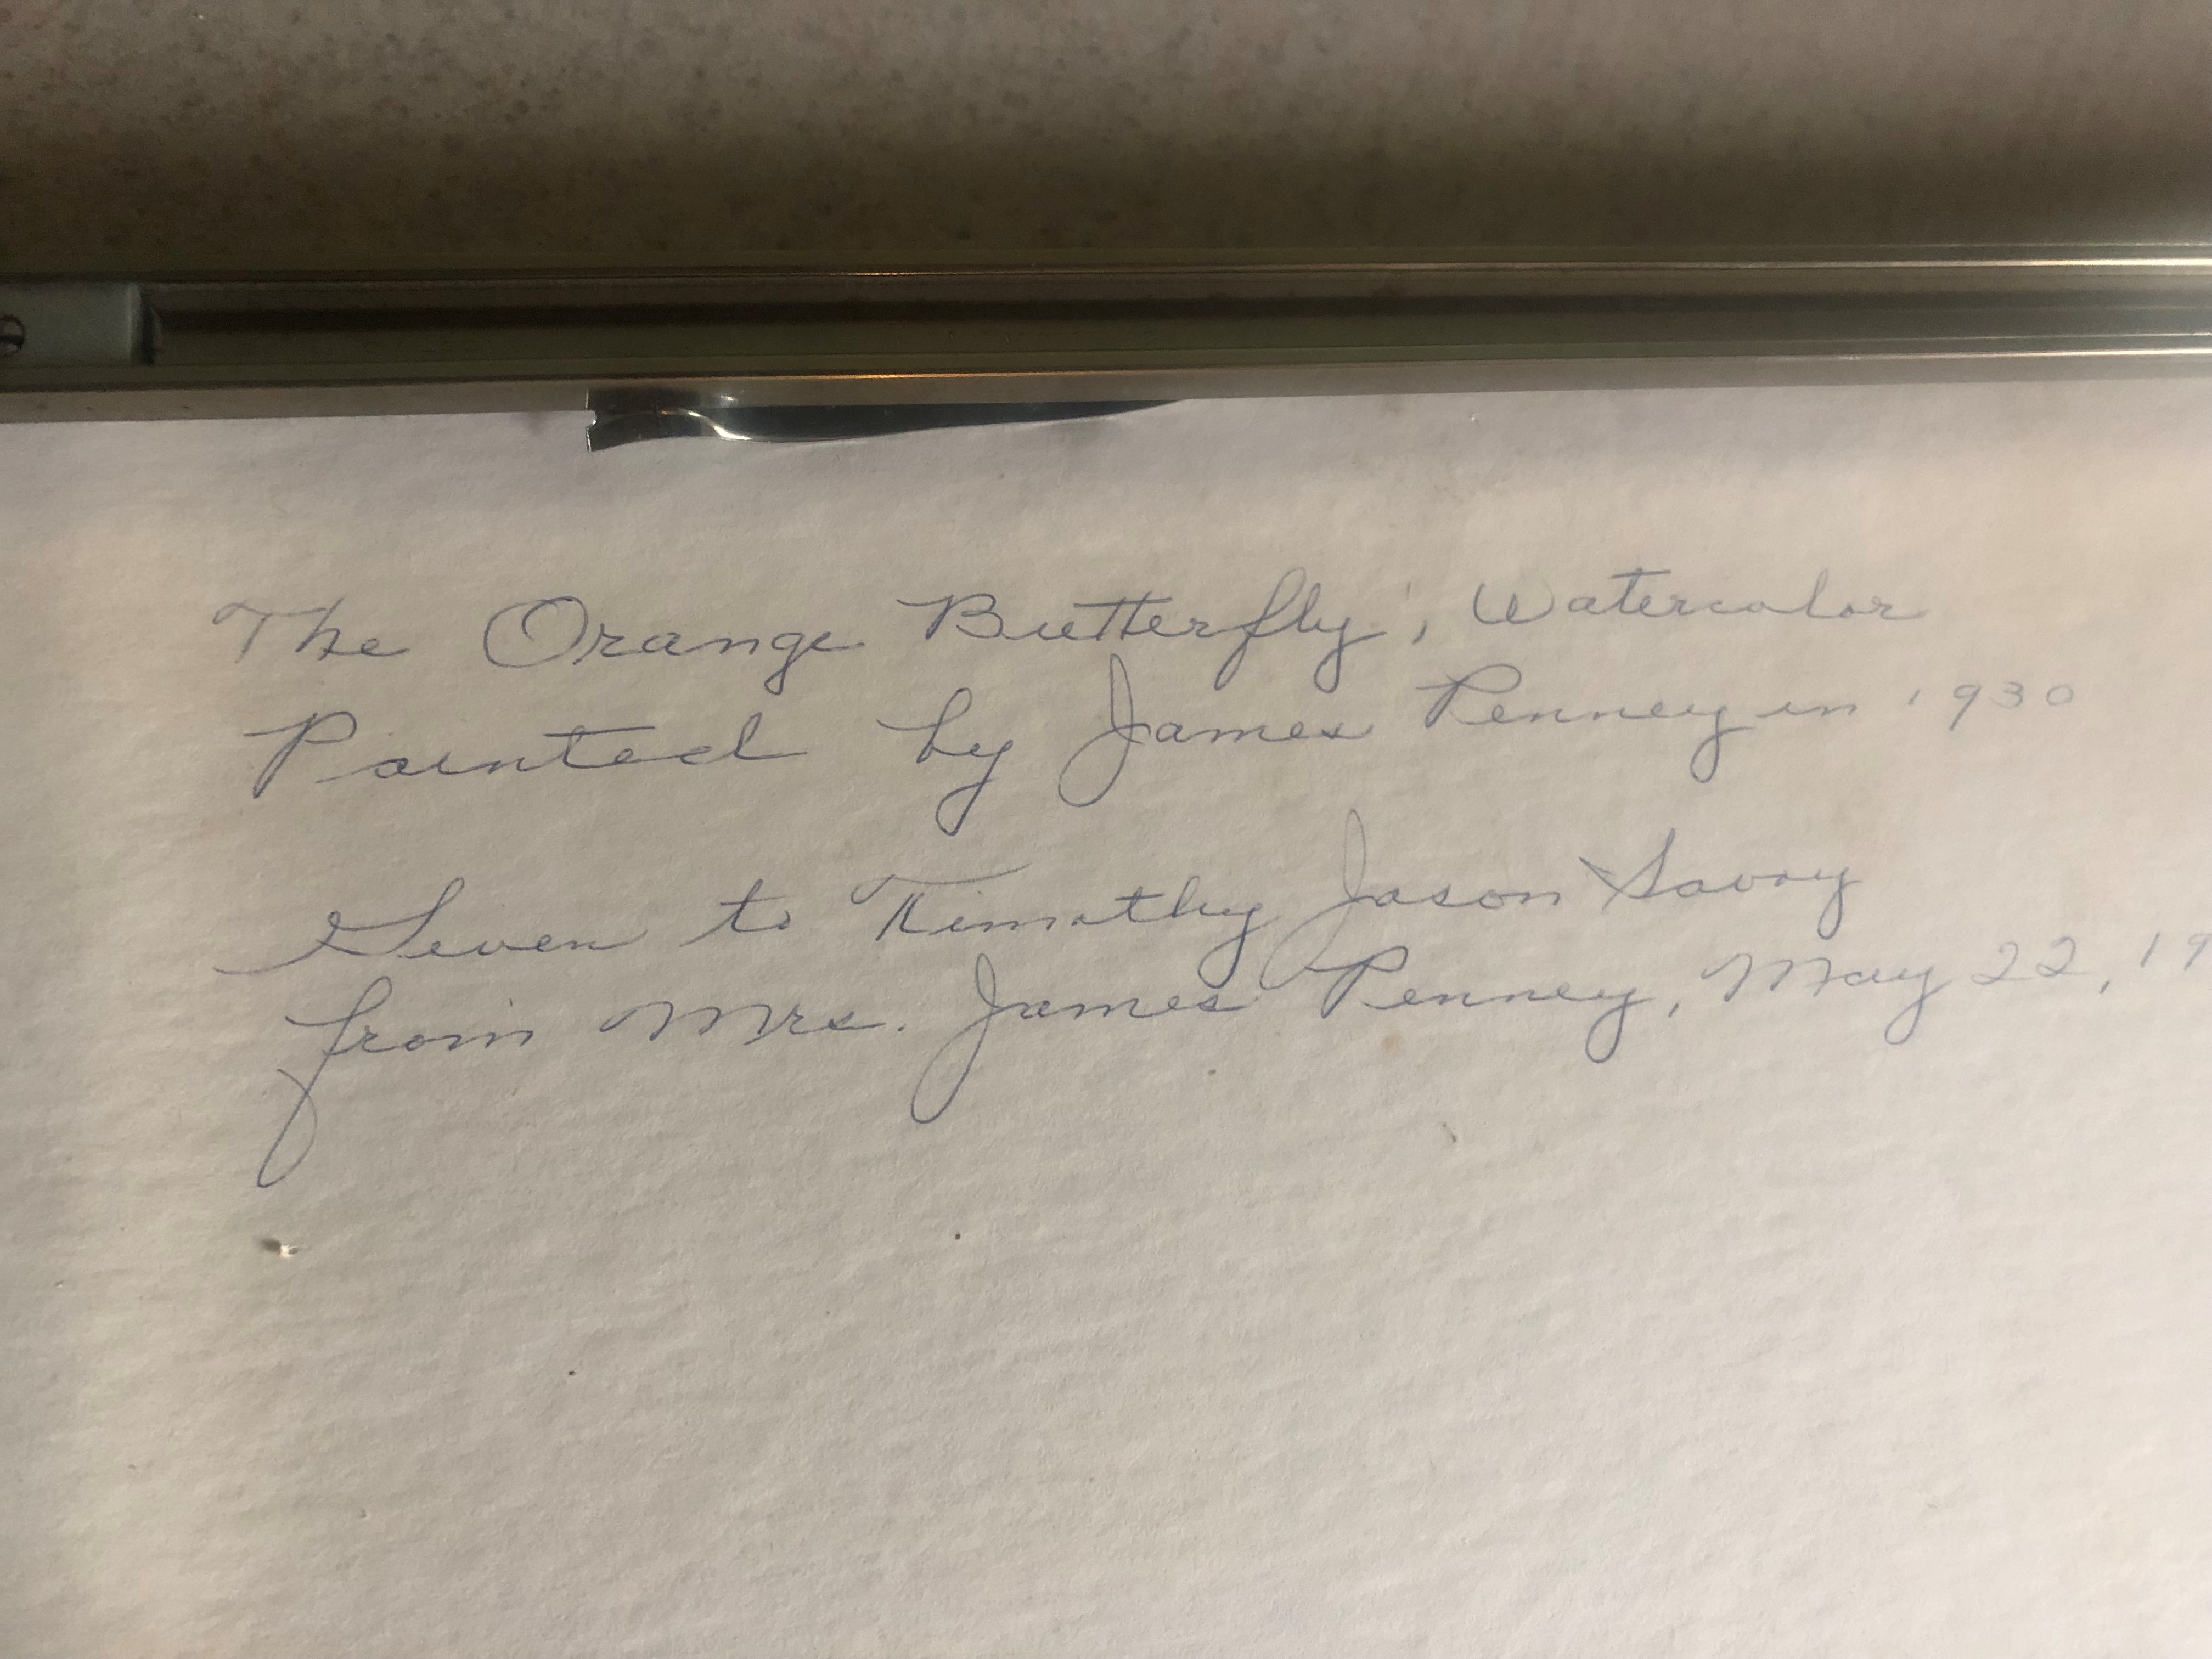 The Orange Butterfly', Watercolor
Painted by James Penney in 1930
Given to Timothy Jason Savoy
from Mrs. James Penney, May 22, 19